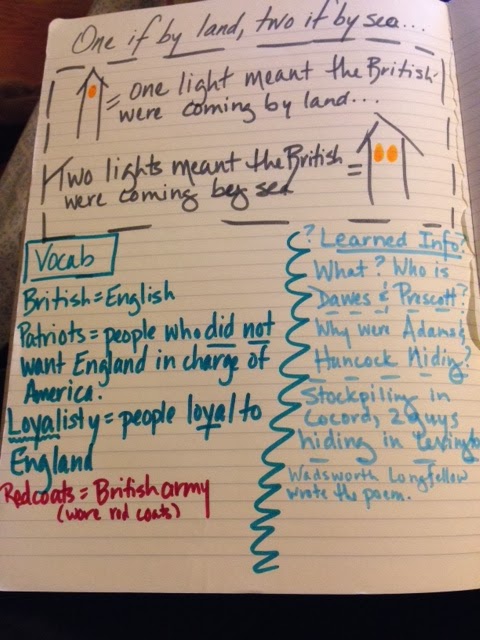 One if by land, two if by sea...
= one light meant the British
were coming by land...
Two lights meant the British =
were coming by sea
Vocab
British = English
Patriots = people who did not
want England in charge of
America.
Loyalisty = people loyal to
England
Redcoats = British army
(wore red coats)
? Learned Info?
What? Who is
Dawes & Prescott?
Why were Adams &
Hancock Hiding?
Stockpiling in
Cocord, 2 guys
hiding in Lexington
Wadsworth Longfellow
wrote the poem.